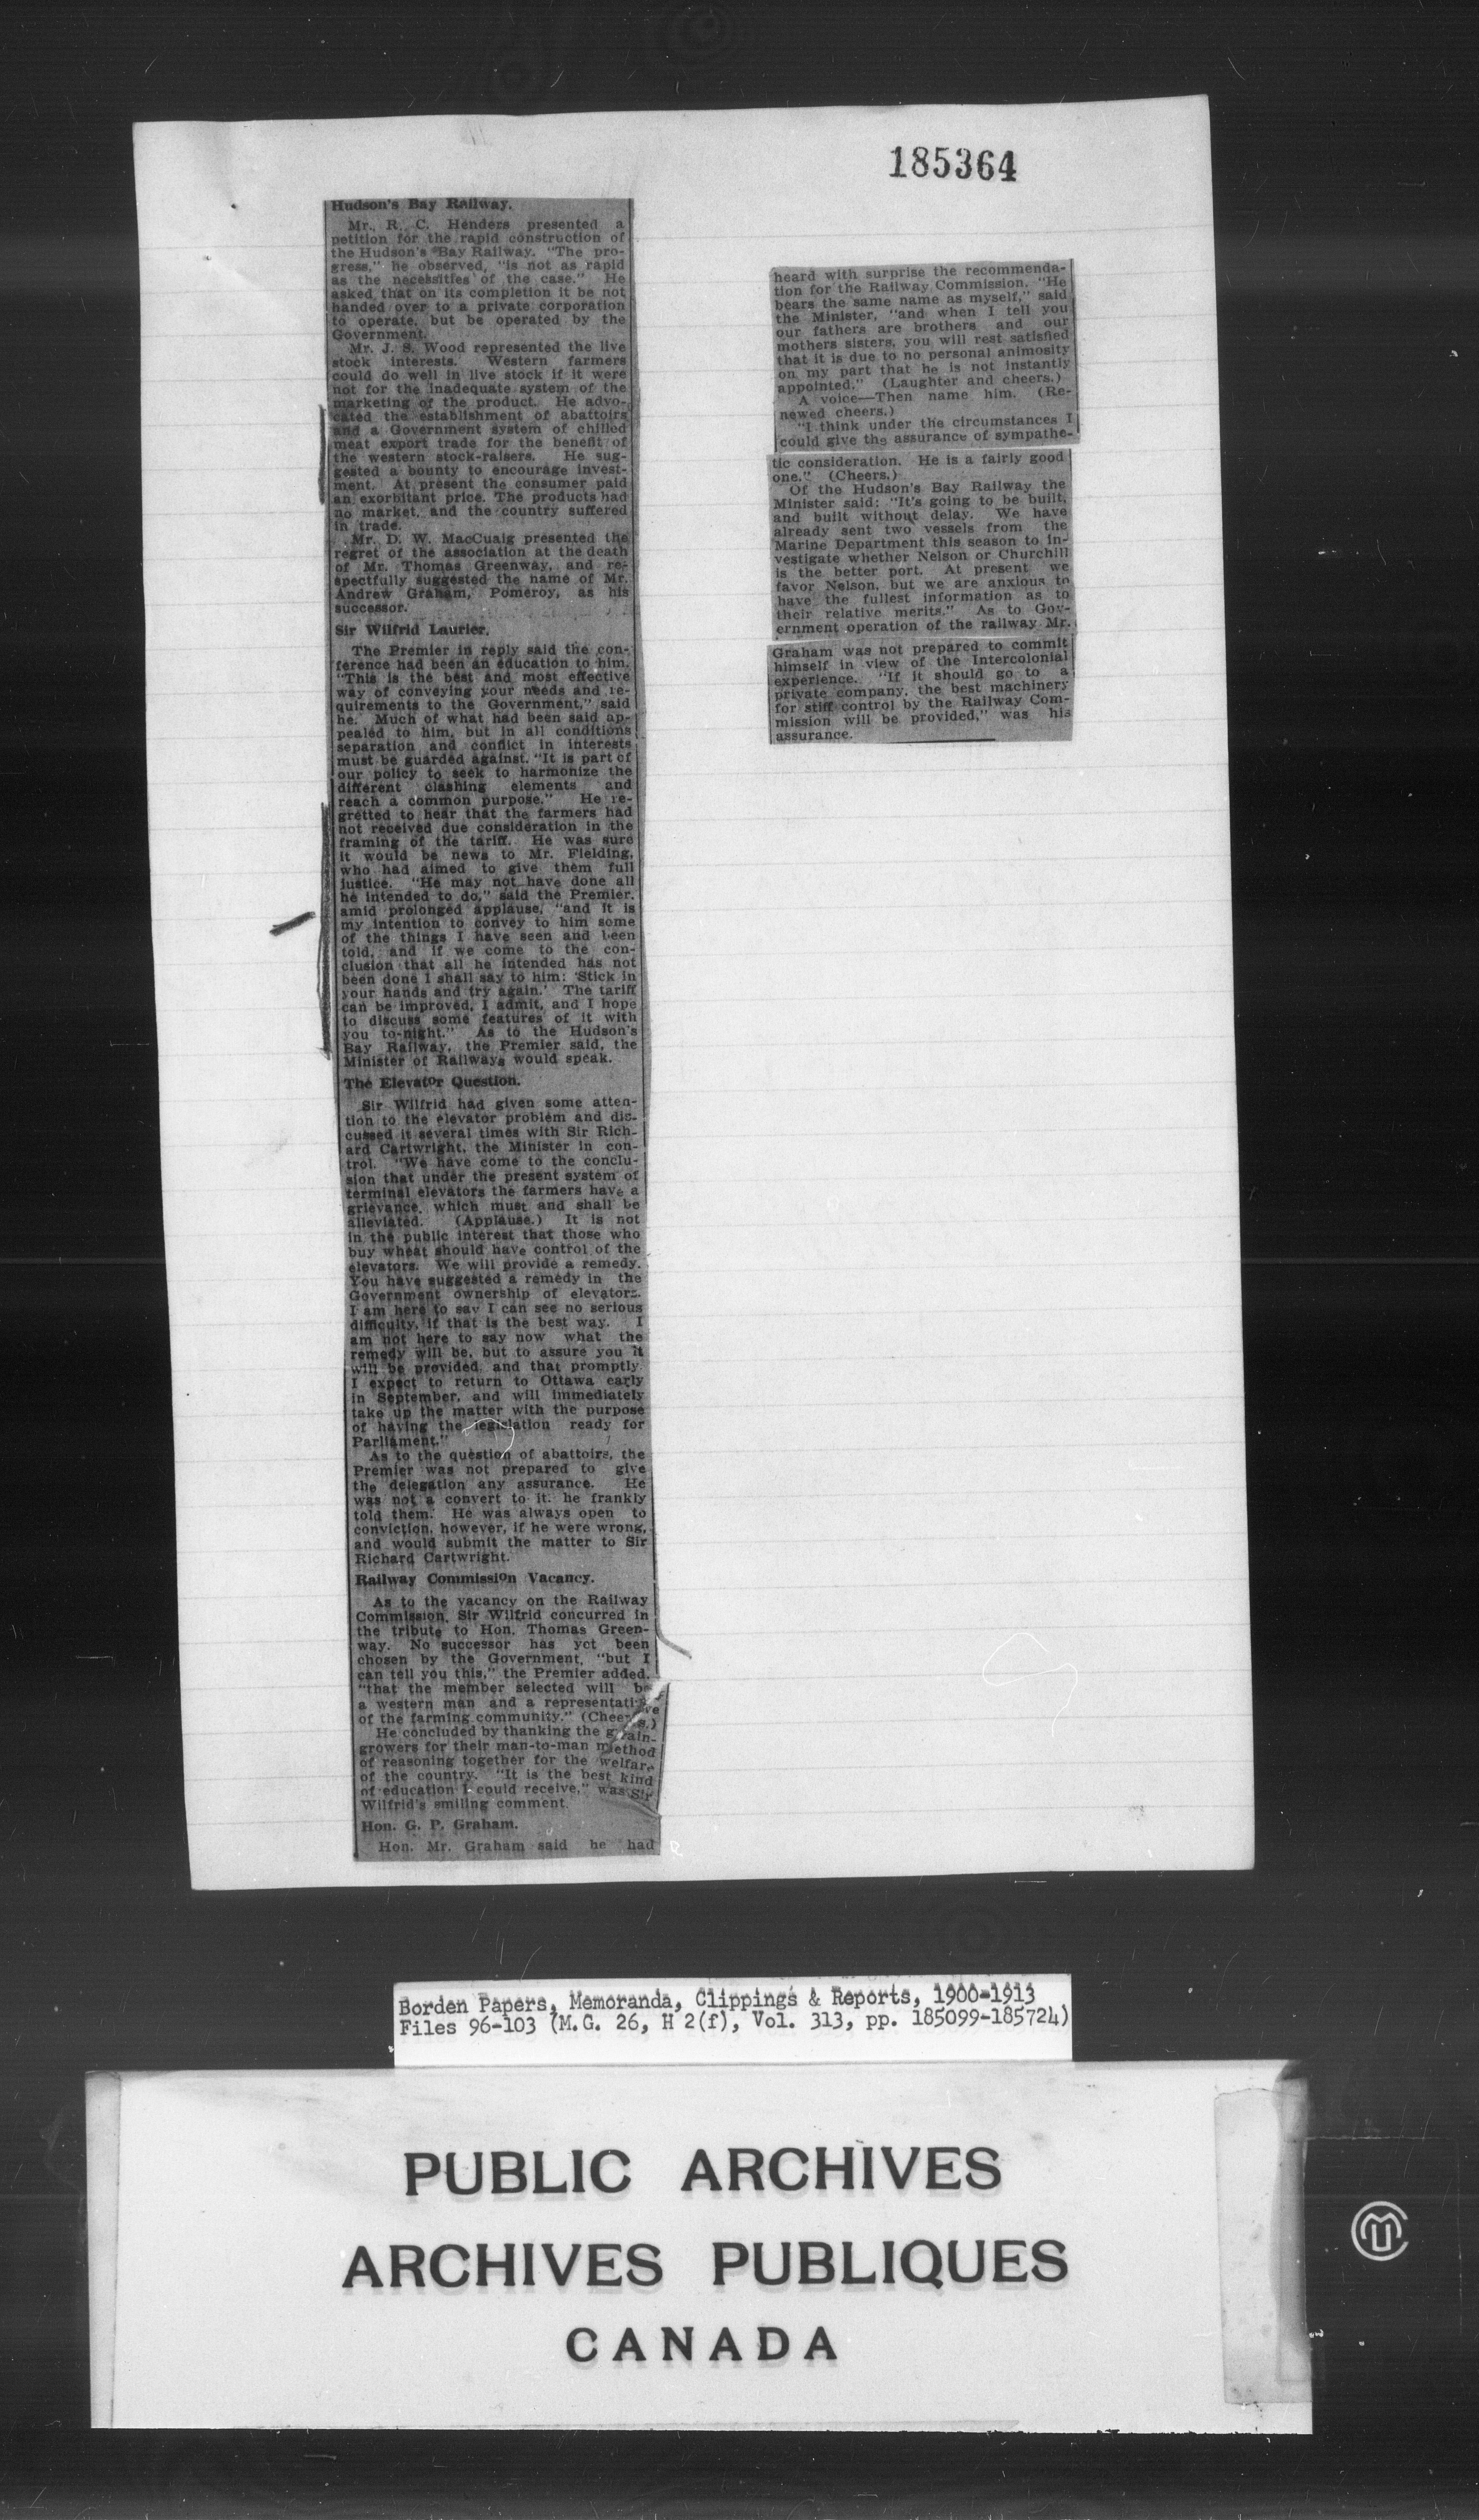 185364
Hudson's Bay Railway.
Mr. R. C. Henders presented a
petition for the rapid construction of
the Hudson's Bay Railway. "The pro-
gress," he observed, "is not as rapid
as the necessities of the case." He
asked that on its completion it be not
handed over to a private corporation
to operate, but be operated by the
Government.
Mr. J. S. Wood represented the live
stock interests. Western farmers
could do well in live stock if it were
not for the inadequate system of the
marketing of the product. He advo-
cated the establishment of abattoirs
and a Government system of chilled
meat export trade for the benefit of
the western stock-raisers. He sug-
gested a bounty to encourage invest-
ment. At present the consumer paid
an exorbitant price. The products had
no market, and the country suffered
in trade.
Mr. D. W. MacCuaig presented the
regret of the association at the death
of Mr. Thomas Greenway, and re-
spectfully suggested the name of Mr.
Andrew Graham, Pomeroy, as his
successor.
Sir Wilfrid Laurier.
The Premier in reply said the con-
ference had been an education to him.
"This is the best and most effective
way of conveying your needs and re-
quirements to the Government," said
he. Much of what had been said ap-
pealed to him, but in all conditions
separation and conflict in interests
must be guarded against. "It is part of
our policy to seek to harmonize the
different clashing elements and
reach a common purpose." He re-
gretted to hear that the farmers had
not received due consideration in the
framing of the tariff. He was sure
it would be news to Mr. Fielding,
who had aimed to give them full
justice. "He may not have done all
he intended to do," said the Premier,
amid prolonged applause, "and it is
my intention to convey to him some
of the things I have seen and been
told, and if we come to the con-
clusion that all he intended has not
been done I shall say to him: 'Stick in
your hands and try again.' The tariff
can be improved, I admit, and I hope
to discuss some features of it with
you to-night." As to the Hudson's
Bay Railway, the Premier said, the
Minister of Railways would speak.
The Elevator Question.
Sir Wilfrid had given some atten-
tion to the elevator problem and dis-
cussed it several times with Sir Rich-
ard Cartwright, the Minister in con-
trol. "We have come to the conclu-
sion that under the present system of
terminal elevators the farmers have a
grievance, which must and shall be
alleviated. (Applause.) It is not
in the public interest that those who
buy wheat should have control of the
elevators. We will provide a remedy.
You have suggested a remedy in the
Government ownership of elevators.
I am here to say I can see no serious
difficulty, if that is the best way. I
am not here to say now what the
remedy will be, but to assure you it
will be provided, and that promptly.
I expect to return to Ottawa early
in September, and will immediately
take up the matter with the purpose
of having the legislation ready for
Parliament."
As to the question of abattoirs, the
Premier was not prepared to give
the delegation any assurance. He
was not a convert to it, he frankly
told them. He was always open to
conviction, however, if he were wrong,
and would submit the matter to Sir
Richard Cartwright.
Railway Commission Vacancy.
As to the vacancy on the Railway
Commission, Sir Wilfrid concurred in
the tribute to Hon. Thomas Green-
way. No successor has yet been
chosen by the Government, "but I
can tell you this," the Premier added,
"that the member selected will be
a western man and a representative
of the farming community." (Cheers.)
He concluded by thanking the grain-
growers for their man-to-man method
of reasoning together for the welfare
of the country. "It is the best kind
of education I could receive," was Sir
Wilfrid's smiling comment.
Hon. G. P. Graham.
Hon. Mr. Graham said he had
heard with surprise the recommenda-
tion for the Railway Commission. "He
bears the same name as myself," said
the Minister, "and when I tell you
our fathers are brothers and our
mothers sisters, you will rest satisfied
that it is due to no personal animosity
on my part that he is not instantly
appointed." (Laughter and cheers.)
A voice—Then name him. (Re-
newed cheers.)
"I think under the circumstances I
could give the assurance of sympathe-
tic consideration. He is a fairly good
one." (Cheers.)
Of the Hudson's Bay Railway the
Minister said: "It's going to be built,
and built without delay. We have
already sent two vessels from the
Marine Department this season to in-
vestigate whether Nelson or Churchill
is the better port. At present we
favor Nelson, but we are anxious to
have the fullest information as to
their relative merits." As to Gov-
ernment operation of the railway Mr.
Graham was not prepared to commit
himself in view of the Intercolonial
experience. "If it should go to a
private company, the best machinery
for stiff control by the Railway Com-
mission will be provided," was his
assurance.
Borden Papers, Memoranda, Clippings & Reports, 1900-1913
Files 96-103 (M.G. 26, H 2(f), Vol. 313, pp. 185099-185724)
PUBLIC ARCHIVES
ARCHIVES PUBLIQUES
CANADA